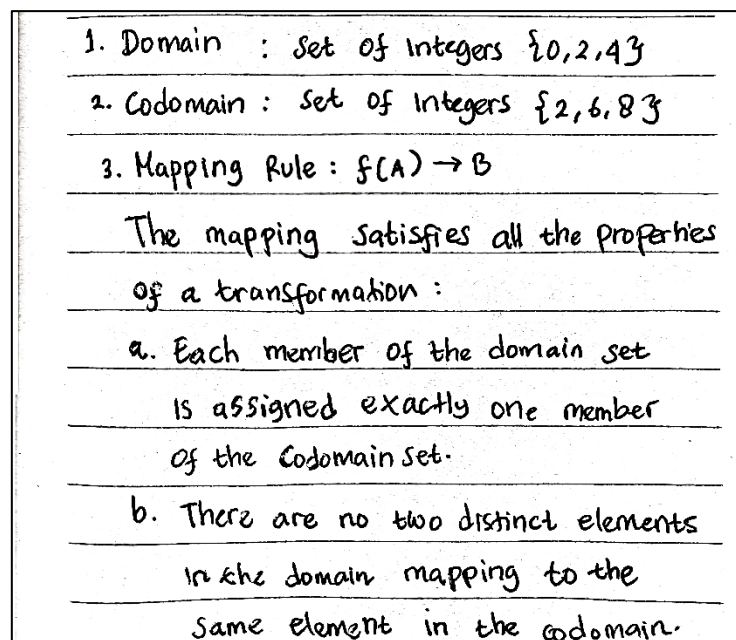 1. Domain : Set of Integers {0,2,4}
2. Codomain : Set of Integers {2,6,8}
3. Mapping Rule : f(A) → B
The mapping satisfies all the properties
of a transformation :
a. Each member of the domain set
is assigned exactly one member
of the Codomain set.
b. There are no two distinct elements
in the domain mapping to the
same element in the codomain.